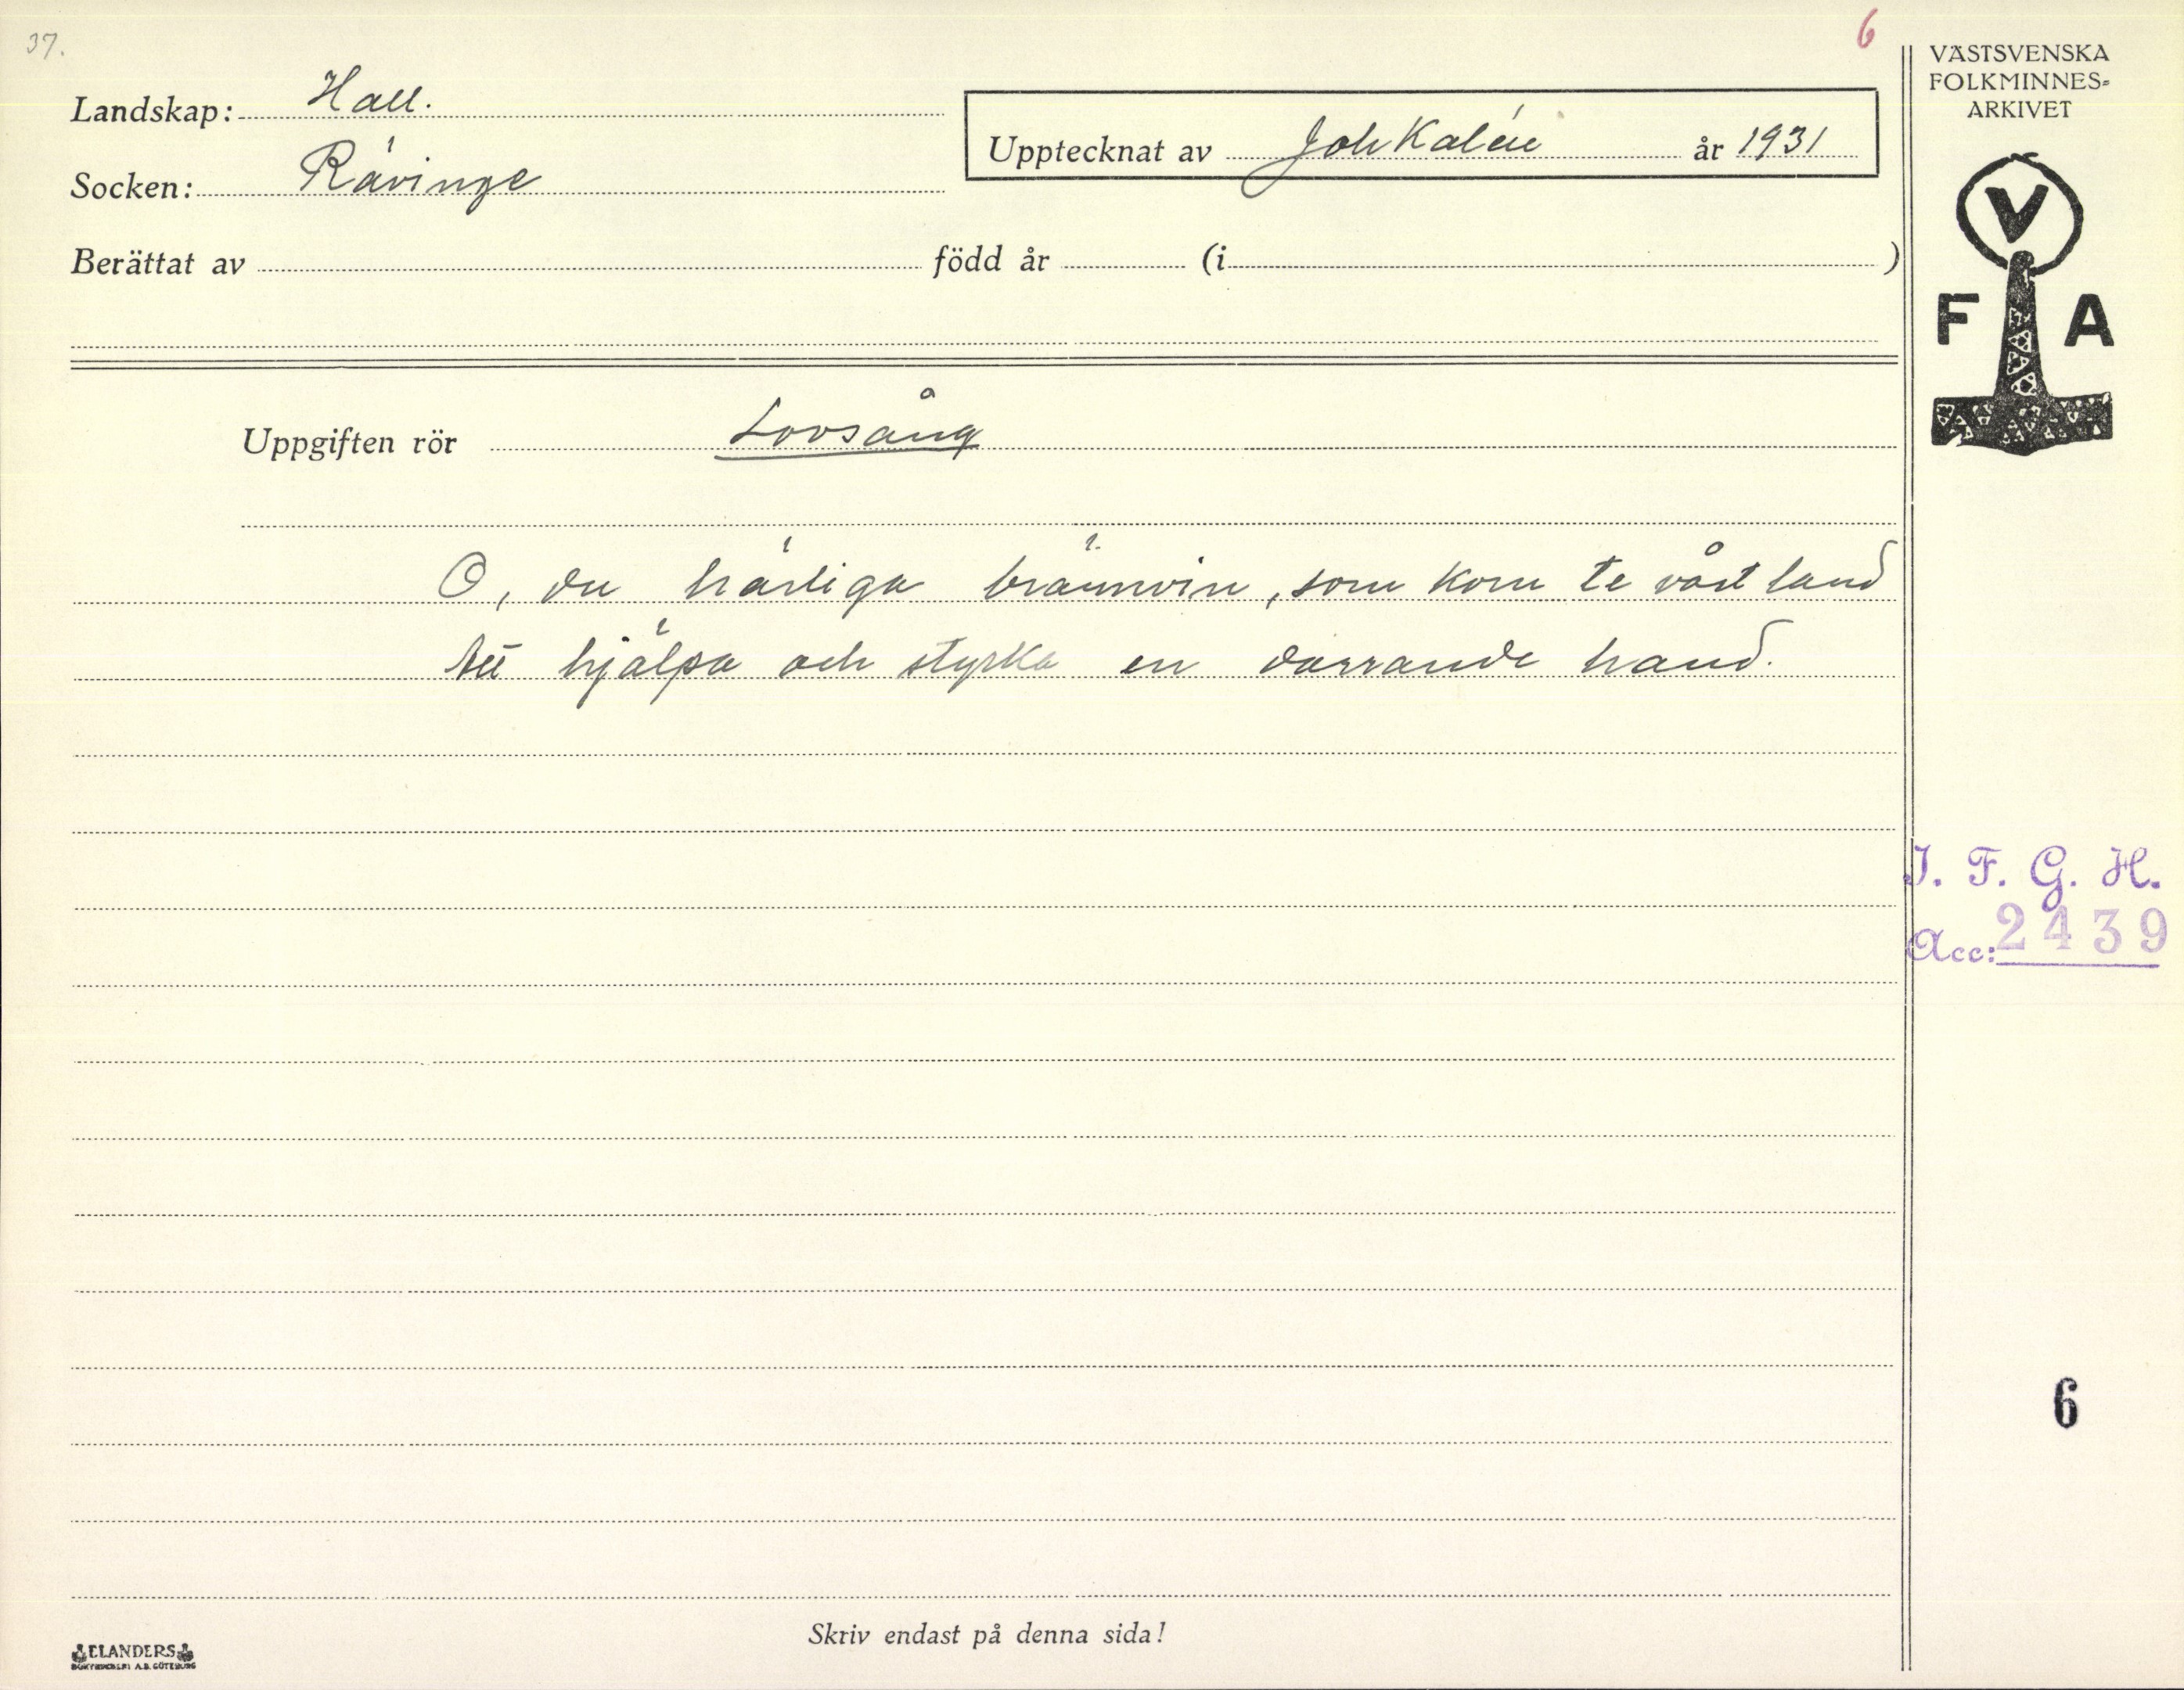 37.
6
Landskap: Hall.
Socken: Rävinge
Upptecknat av Joh Kalén år 1931
Berättat av född år (i )
VÄSTSVENSKA
FOLKMINNES=
ARKIVET
V
F A
Uppgiften rör Lovsång
O, du härliga brännvin, som kom te vårt land
Att hjälpa och styrka en darrande hand.
I. F. G. H.
Acc: 2439
6
Skriv endast på denna sida!
ELANDERS
BOKTRYCKERI A.B. GÖTEBORG